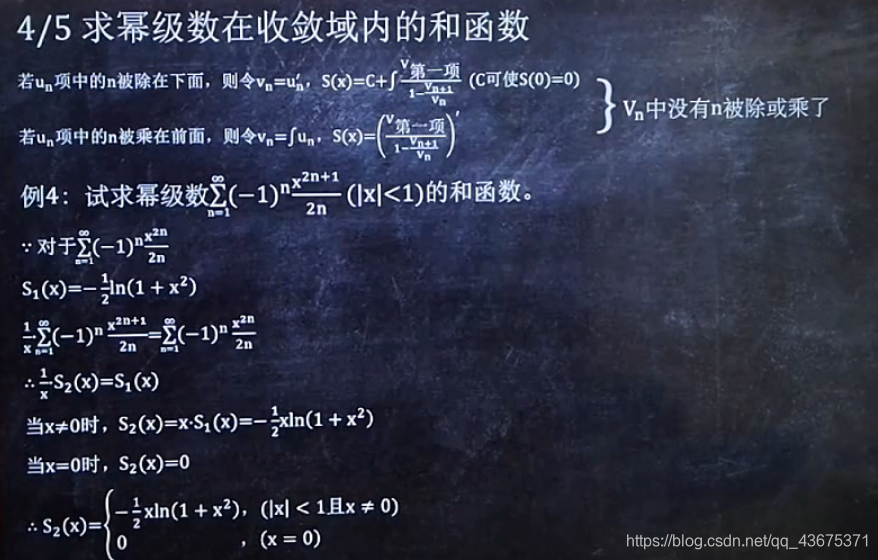 4/5 求幂级数在收敛域内的和函数
若uₙ项中的n被除在下面，则令vₙ=uₙ′，S(x)=C+∫ v第一项/(1−vₙ₊₁/vₙ) (C可使S(0)=0)
若uₙ项中的n被乘在前面，则令vₙ=∫uₙ，S(x)=(v第一项/(1−vₙ₊₁/vₙ))′
} Vₙ中没有n被除或乘了
例4：试求幂级数∑_{n=1}^{∞}(−1)ⁿ x²ⁿ⁺¹/2n (|x|<1)的和函数。
∵ 对于∑_{n=1}^{∞}(−1)ⁿ x²ⁿ/2n
S₁(x)=−1/2 ln(1+x²)
1/x·∑_{n=1}^{∞}(−1)ⁿ x²ⁿ⁺¹/2n=∑_{n=1}^{∞}(−1)ⁿ x²ⁿ/2n
∴ 1/x·S₂(x)=S₁(x)
当x≠0时，S₂(x)=x·S₁(x)=−1/2 xln(1+x²)
当x=0时，S₂(x)=0
∴ S₂(x)={ −1/2 xln(1+x²)，(|x|<1且x≠0)
0 ，(x=0)
https://blog.csdn.net/qq_43675371